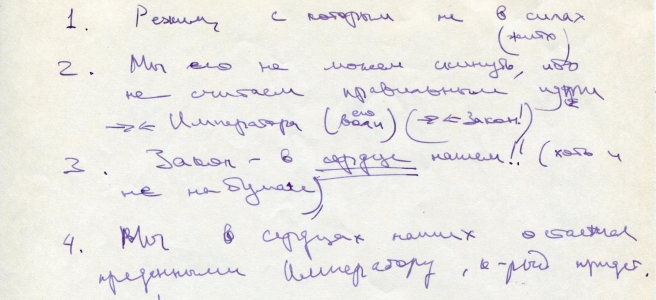 1. Режим, с которым не в силах
(жить)
2. Мы его не можем скинуть, ибо
не считаем правильным идти
→← Императора (его воли) (→← Закон!)
3. Закон – в сердце нашем!! (хоть и
не на бумаге)
4. Мы в сердцах наших остаемся
преданными Императору, к-рый придет.